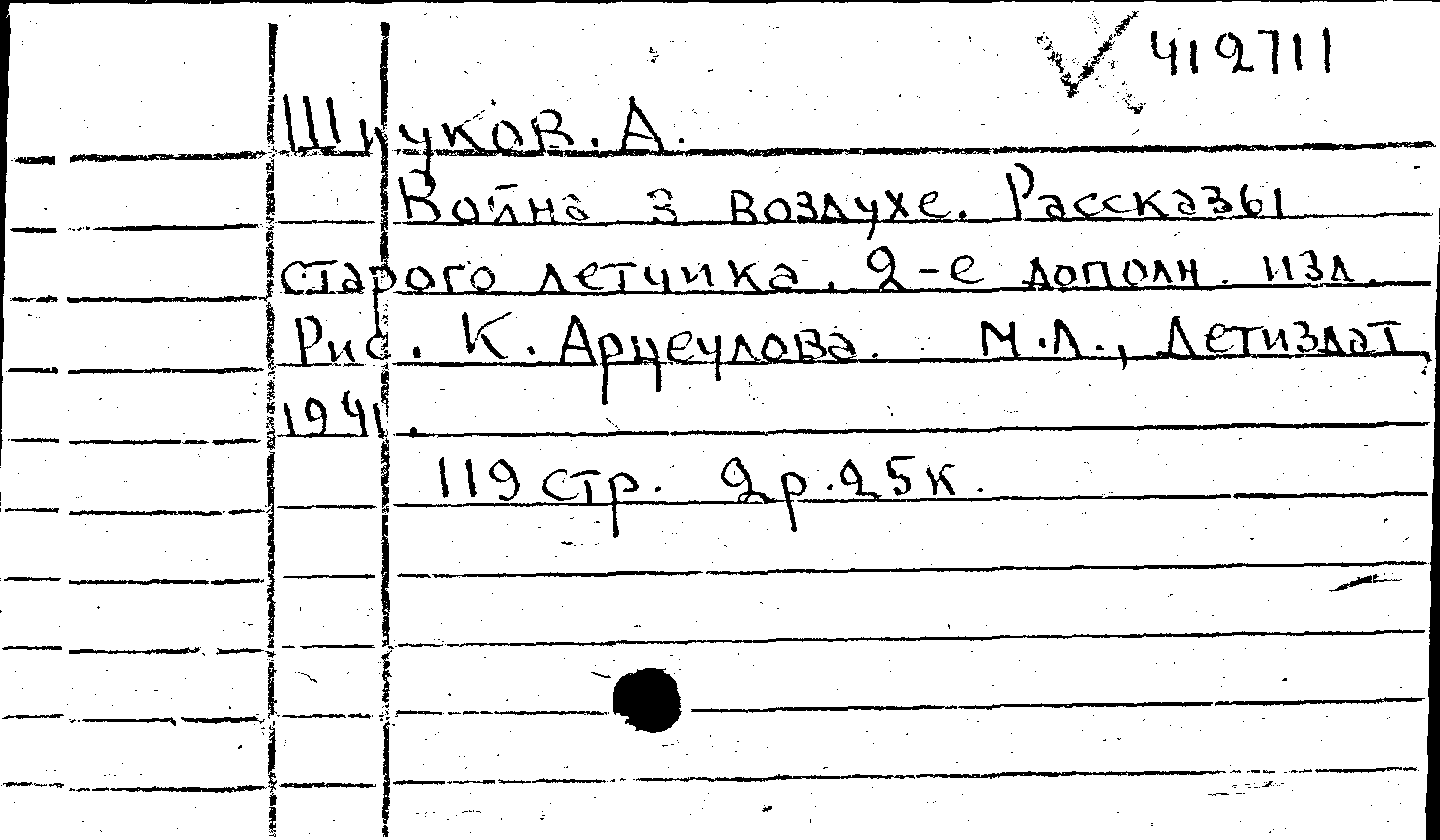 412711
Шиуков. А.
Война в воздухе. Рассказы
старого летчика. 2-е дополн. изд.
Рис. К. Арцеулова. М.Л., Детиздат,
1941.
119 стр. 2р.25к.